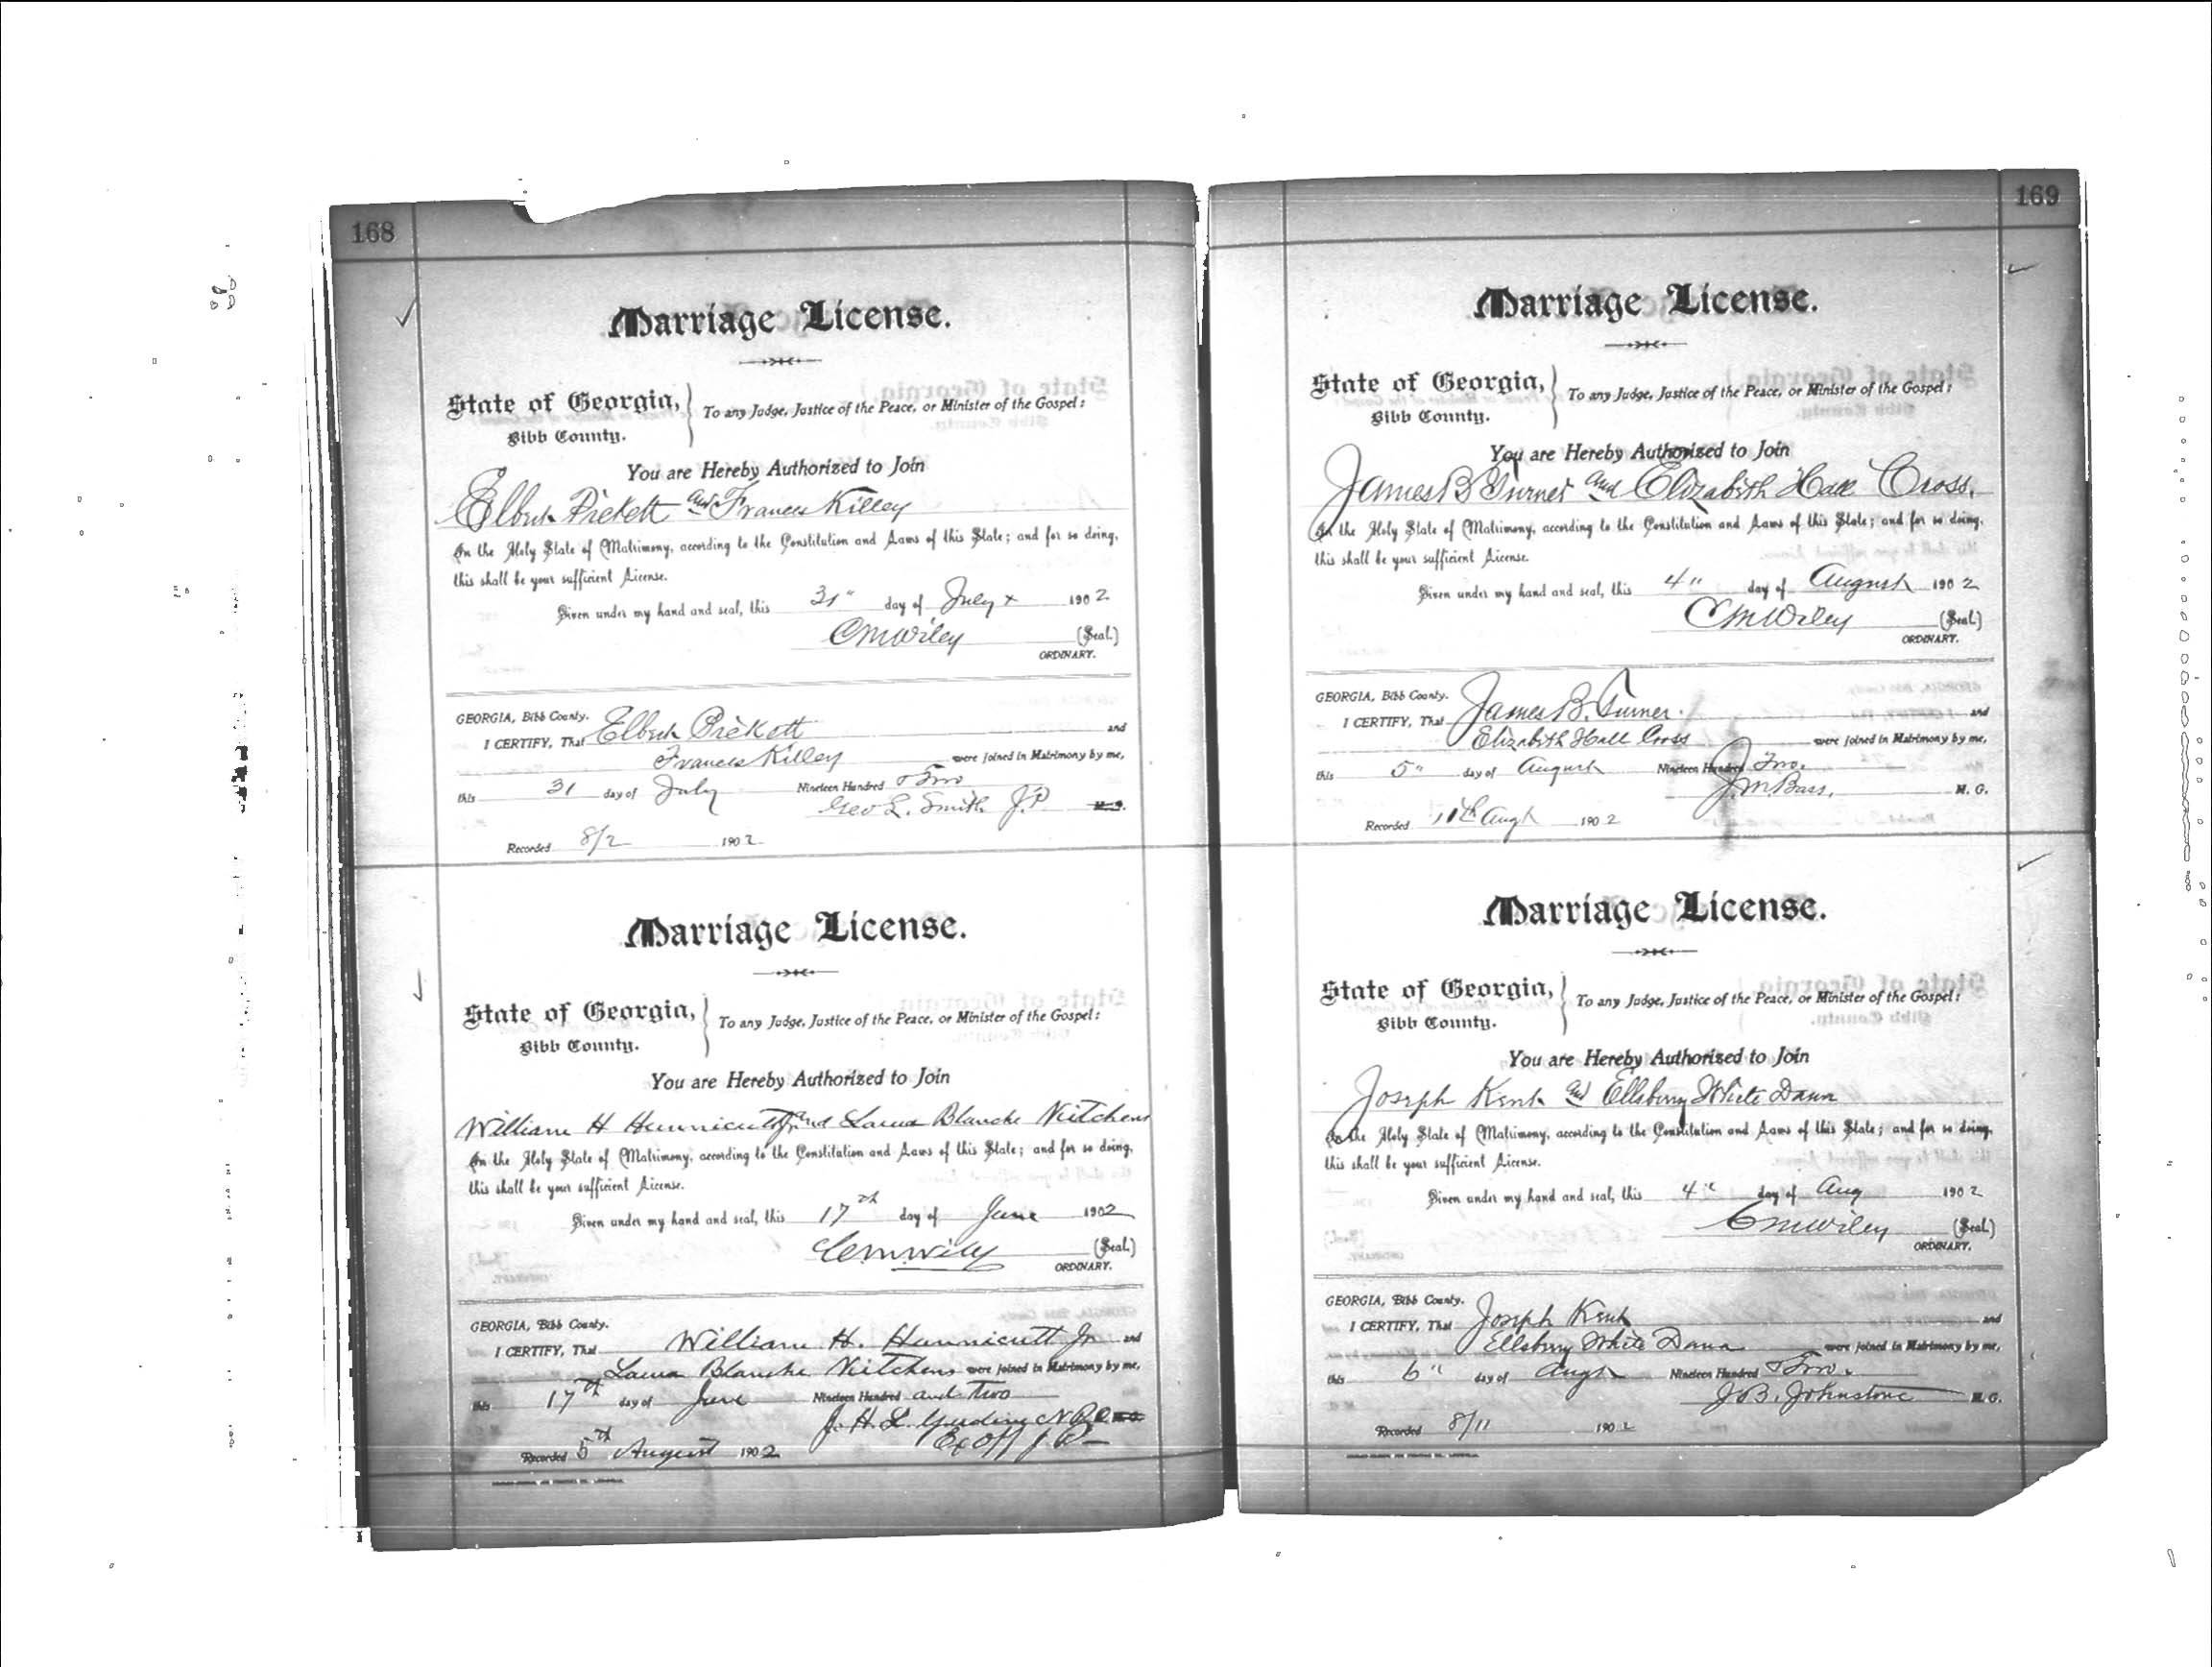 168
Marriage License.
State of Georgia,
Bibb County.
To any Judge, Justice of the Peace, or Minister of the Gospel:
You are Hereby Authorized to Join
Elbert Pickett and Frances Killey
In the Holy State of Matrimony, according to the Constitution and Laws of this State; and for so doing,
this shall be your sufficient License.
Given under my hand and seal, this 31" day of July x 1902
CMWiley (Seal.)
ORDINARY.
GEORGIA, Bibb County.
I CERTIFY, That Elbert Pickett and
Frances Killey were joined in Matrimony by me,
this 31 day of July Nineteen Hundred & Two
Geo L. Smith J.P. M. G.
Recorded 8/2 1902
Marriage License.
State of Georgia,
Bibb County.
To any Judge, Justice of the Peace, or Minister of the Gospel:
You are Hereby Authorized to Join
William H Hunnicutt Jr and Laura Blanche Kitchens
In the Holy State of Matrimony, according to the Constitution and Laws of this State; and for so doing,
this shall be your sufficient License.
Given under my hand and seal, this 17th day of June 1902
C.M. Wiley (Seal.)
ORDINARY.
GEORGIA, Bibb County.
I CERTIFY, That William H. Hunnicutt Jr and
Laura Blanche Kitchens were joined in Matrimony by me,
this 17th day of June Nineteen Hundred and Two
J. H. L. N.P.
Ex Off J P
Recorded 5th August 1902
169
Marriage License.
State of Georgia,
Bibb County.
To any Judge, Justice of the Peace, or Minister of the Gospel:
You are Hereby Authorized to Join
James B Turner and Elizabeth Hall Cross.
In the Holy State of Matrimony, according to the Constitution and Laws of this State; and for so doing,
this shall be your sufficient License.
Given under my hand and seal, this 4" day of August 1902
CMWiley (Seal.)
ORDINARY.
GEORGIA, Bibb County.
I CERTIFY, That James B. Turner and
Elizabeth Hall Cross were joined in Matrimony by me,
this 5" day of August Nineteen Hundred Two.
J.M. Bass. M. G.
Recorded 11th Augt 1902
Marriage License.
State of Georgia,
Bibb County.
To any Judge, Justice of the Peace, or Minister of the Gospel:
You are Hereby Authorized to Join
Joseph Kent and Ellsberry White Dann
In the Holy State of Matrimony, according to the Constitution and Laws of this State; and for so doing,
this shall be your sufficient License.
Given under my hand and seal, this 4" day of Aug 1902
CMWiley (Seal.)
ORDINARY.
GEORGIA, Bibb County.
I CERTIFY, That Joseph Kent and
Ellsbury White Dana were joined in Matrimony by me,
this 6" day of Augt Nineteen Hundred & Two.
J.B. Johnstone M. G.
Recorded 8/11 1902